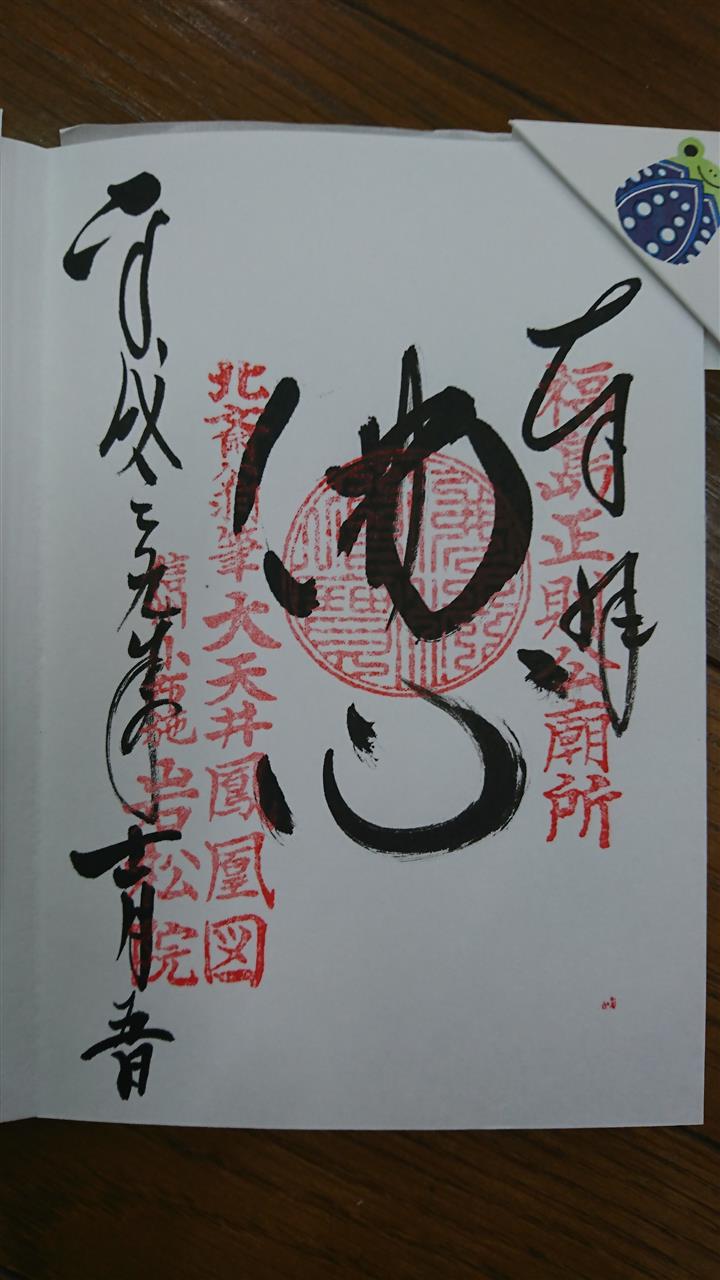 奉拝
福島正則公廟所
佛心
北斎翁筆 大天井鳳凰図
信州小布施 岩松院
平成二九年十一月五日